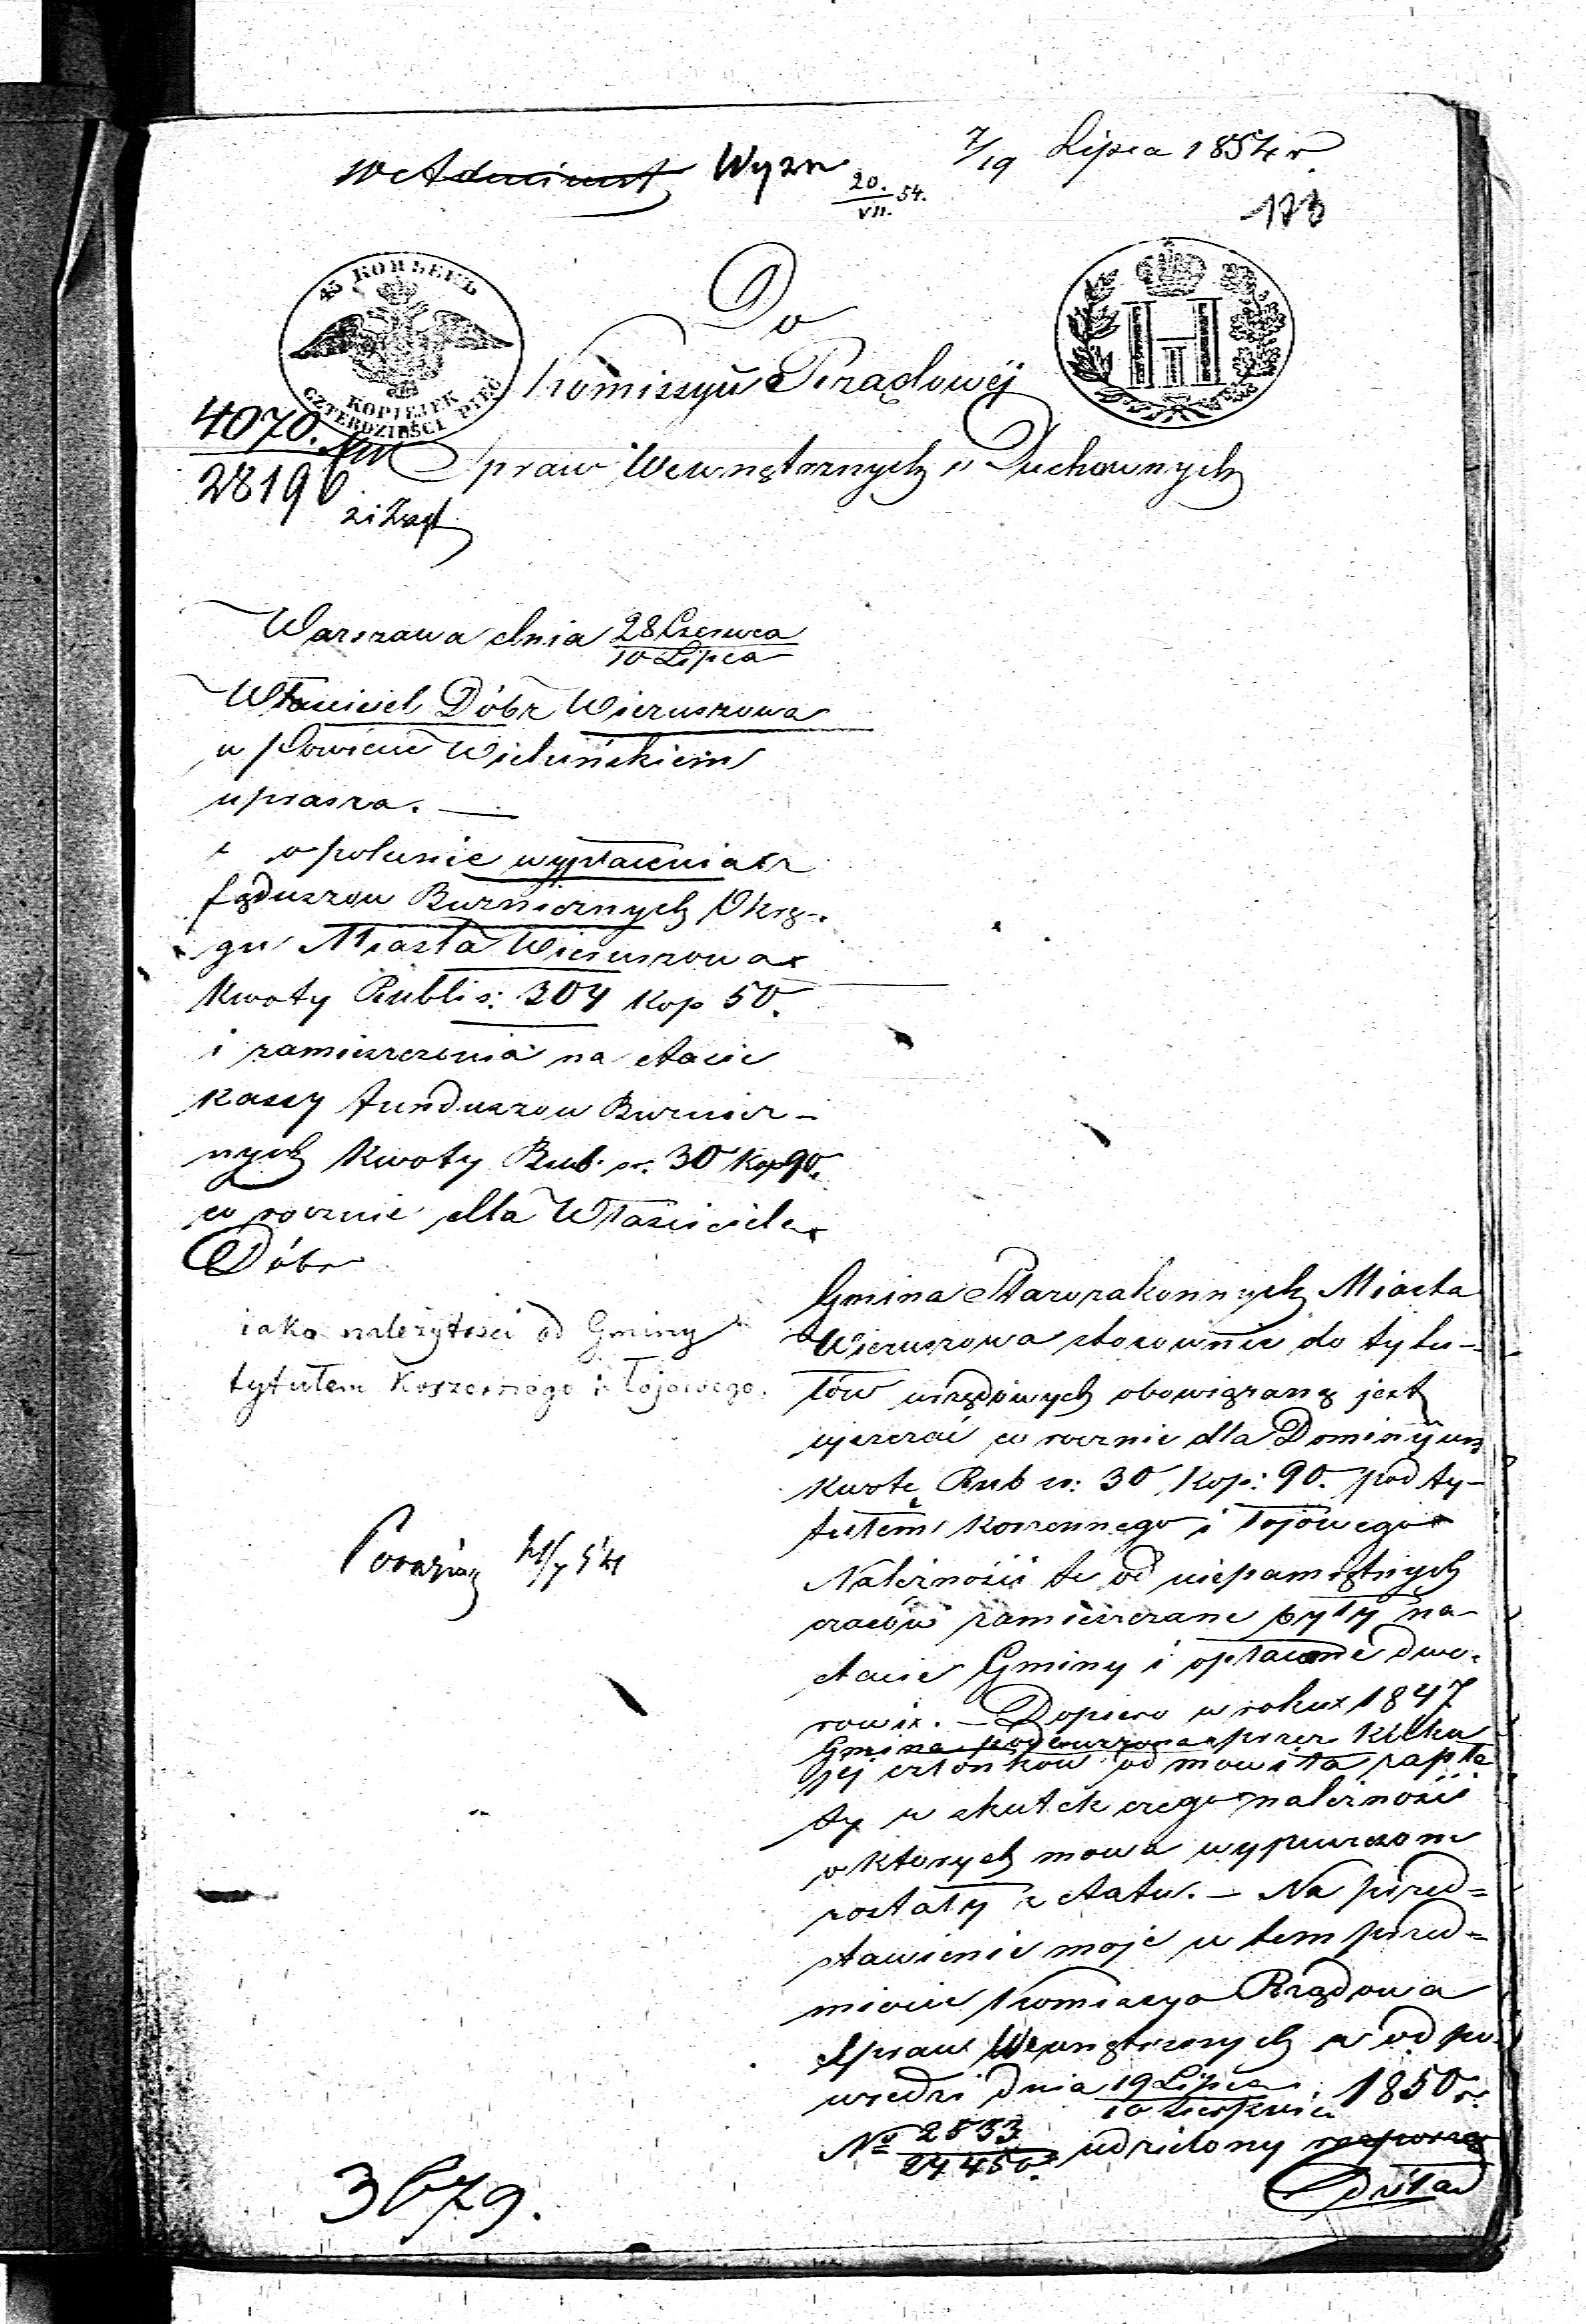 7/19 Lipca 1854 r
Wyzn
20./VII. 54.
173
45 КОПѢЕКЪ
KOPIEJEK
CZTERDZIEŚCI PIĘĆ
H I
Do
Kommissyii Rządowéj
Spraw Wewnętrznych i Duchownych
4070.
28196
Warszawa dnia 28 Czerwca / 10 Lipca
Właściciel Dóbr Wieruszowa
w Powiecie Wieluńskiem
uprasza. —
o polecenie wypłacenia z
fąduszow Buznicznych Okrę-
gu Miasta Wieruszowa
kwoty Rubli s: 304 kop 50.
i zamieszczenia na etacie
kassy funduszow Buznicz-
nych kwoty Rub. sr. 30 kop 90.
co rocznie dla Właściciela
Dóbr
iako należytości od Gminy
tytułem Koszernego i Łojowego.
21/7 54
Gmina Starozakonnych Miasta
Wieruszowa stosownie do tytu-
łów urzędowych obowiązaną jest
uiszczać co rocznie dla Dominijum
kwotę Rub sr: 30 kop: 90. pod ty-
tułem koszernego i łojowego
Należności te od niepamiętnych
czasów zamieszczane były na
etacie Gminy i opłacane dwo-
rowi. — Dopiero w roku 1847
Gmina podburzona przez kilku
jéj członków odmówiła zapła
ty w skutek czego należności
o których mowa wypuszczone
zostały z etatu. — Na przed=
stawienie moje w tem przed=
miocie Kommissya Rządowa
Spraw Wewnętrznych w odpo
wiedzi dnia 19 Lipca / 10 Sierpnia 1850 r.
No 2833 / 24450. udzielony
Odział
3679.